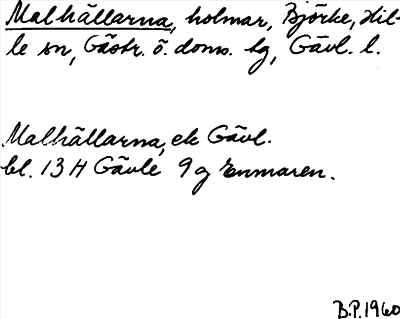 Malhällarna, holmar, Björke, Hil-
le sn, Gästr. ö. doms. tg, Gävl. l.
Malhällarna, ek Gävl.
bl. 13 H Gävle 9 g Enmaren.
B.P. 1960